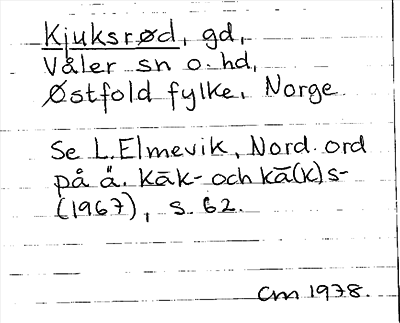 Kjuksrød, gd,
Våler sn o. hd,
Østfold fylke, Norge.
Se L. Elmevik, Nord. ord
på ä. kāk- och kā(k)s-
(1967), s. 62.
CM 1978.